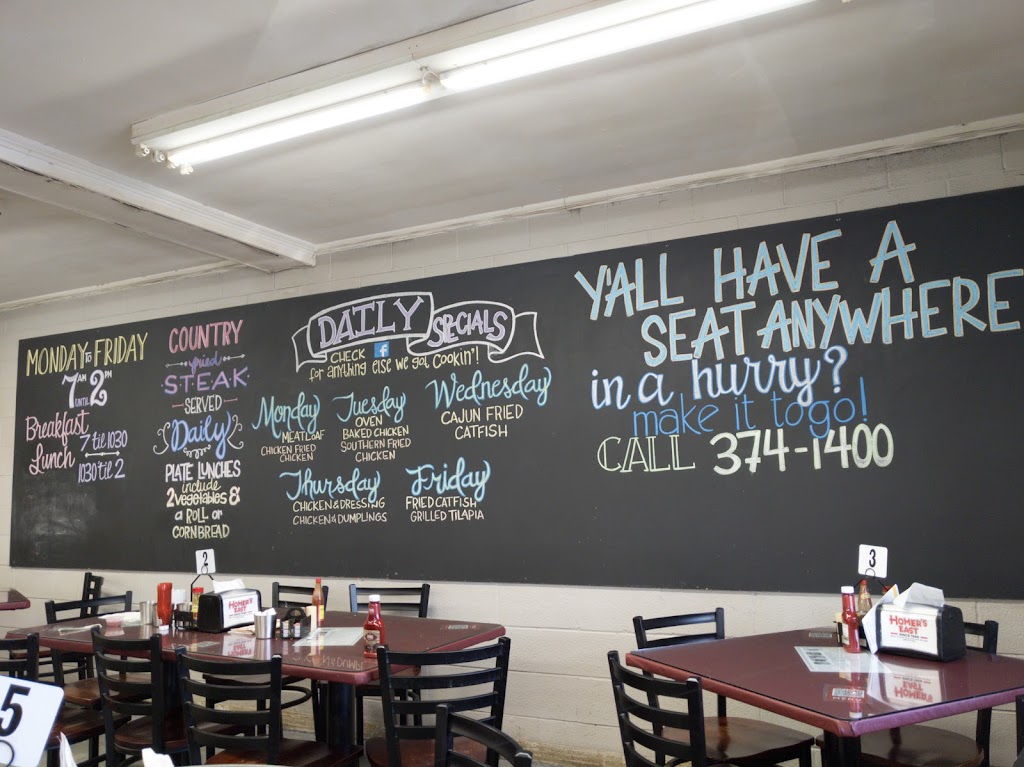 MONDAY to FRIDAY
7AM UNTIL 2PM
Breakfast
7 til 1030
Lunch
1030 til 2
COUNTRY
fried
STEAK
SERVED
Daily
PLATE LUNCHES
include
2 vegetables &
a ROLL or
CORNBREAD
DAILY SPECIALS
CHECK f
for anything else we got cookin'!
Monday
MEATLOAF
CHICKEN FRIED
CHICKEN
Tuesday
OVEN
BAKED CHICKEN
SOUTHERN FRIED
CHICKEN
Wednesday
CAJUN FRIED
CATFISH
Thursday
CHICKEN & DRESSING
CHICKEN & DUMPLINGS
Friday
FRIED CATFISH
GRILLED TILAPIA
Y'ALL HAVE A
SEAT ANYWHERE
in a hurry?
make it to go!
CALL 374-1400
2
3
HOMER'S
EAST
HOMER'S
EAST
5